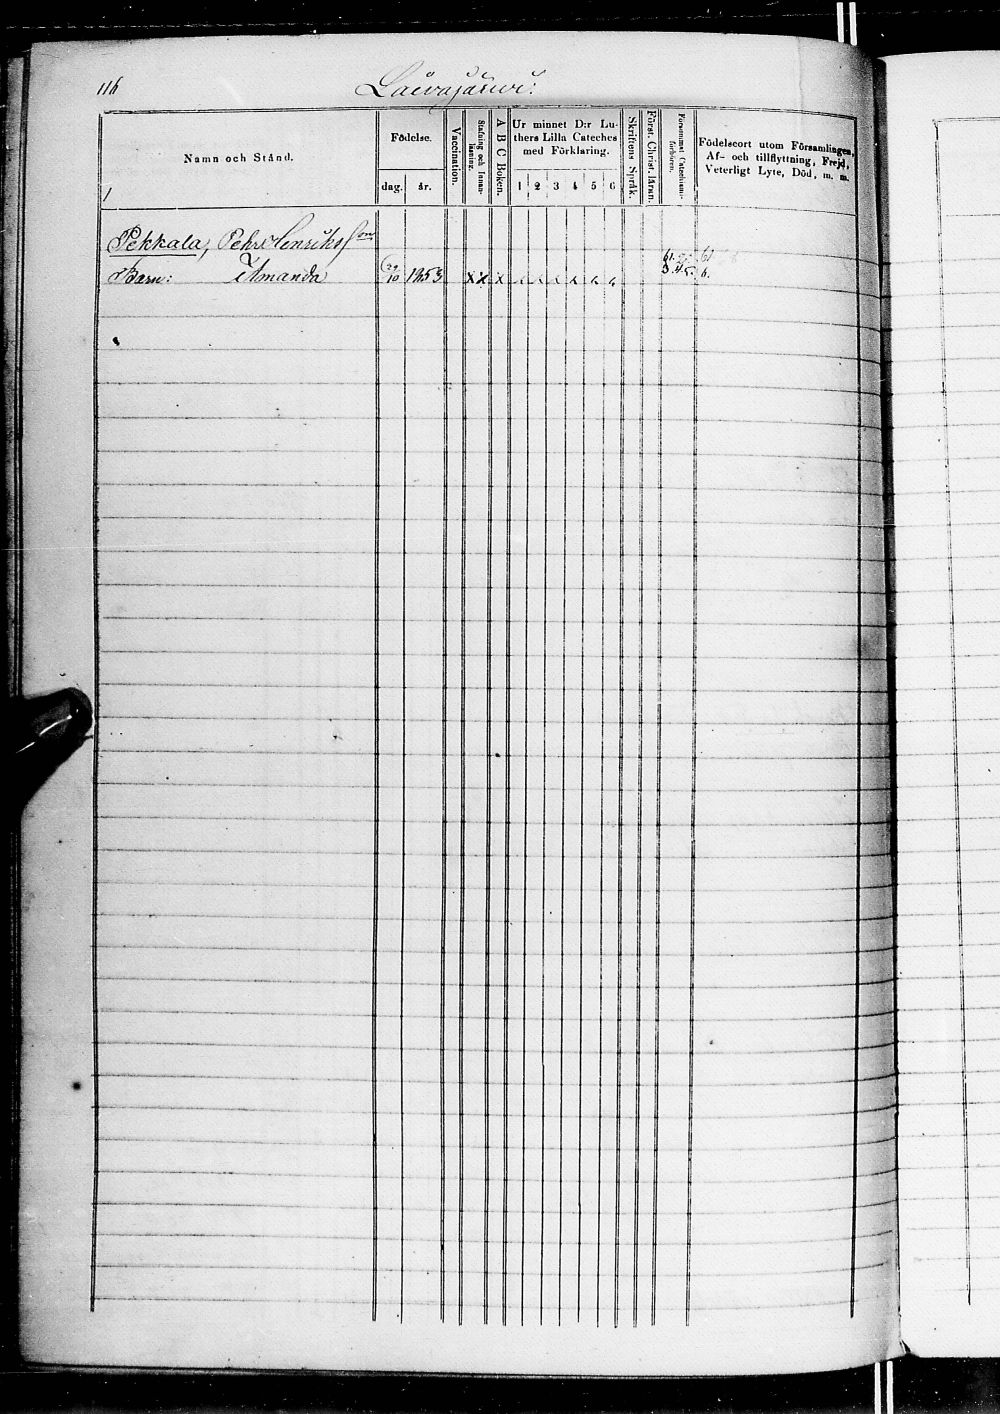 116
Laivajärvi:
Namn och Stånd.
Födelse.
dag. år.
Vaccination.
Stafning och Innanläsning.
A B C Boken.
Ur minnet D:r Luthers Lilla Cateches
med Förklaring.
1 2 3 4 5 6
Skriftens Språk.
Först. Christ. läran.
Försummat Catechismiförhören.
Födelseort utom Församlingen,
Af- och tillflyttning, Frejd,
Veterligt Lyte, Död, m. m.
Pekkala, Pehr Henriksson
Barn: Amanda 29/10 1853 x x x x x x x x x